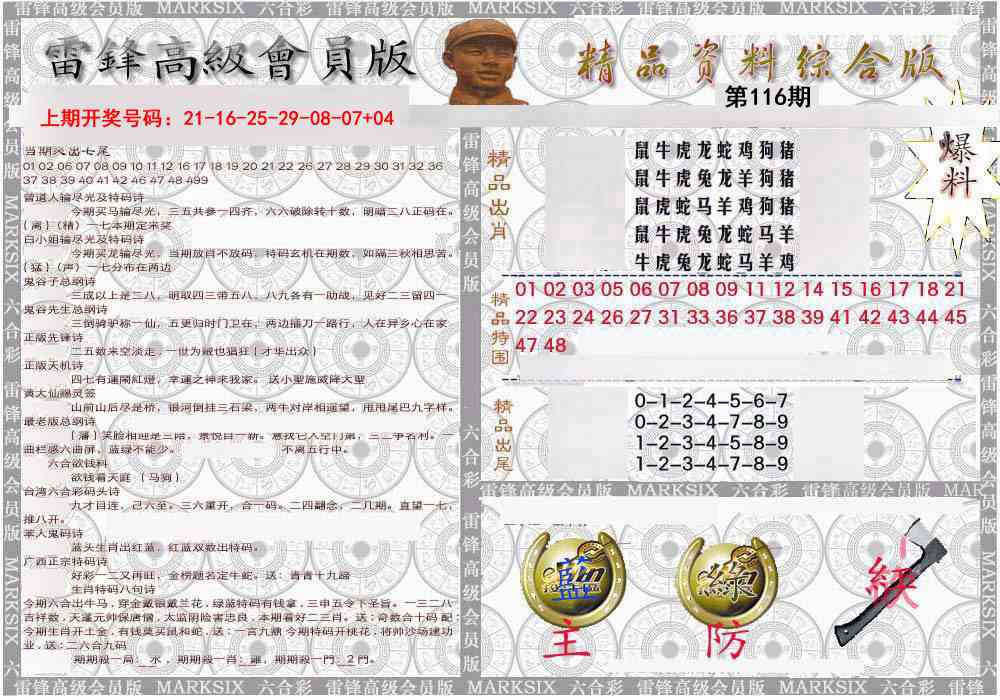 雷锋高级会员版 MARKSIX 六合彩 雷锋高级会员版 MARKSIX 六合彩 雷锋高级会员版 MARKSIX 六合彩 雷锋
雷鋒高級會員版
精品资料综合版
第116期
上期开奖号码：21-16-25-29-08-07+04
爆料
当期奖出七尾
01 02 06 07 08 09 10 11 12 16 17 18 19 20 21 22 26 27 28 29 30 31 32 36
37 38 39 40 41 42 46 47 48 499
曾道人输尽光及特码诗
今期买马输尽光，三五共参一四齐，六六破除转十数，明瞄三八正码在。
{离}（精）一七本期定来奖
白小姐输尽光及特码诗
今期买龙输尽光，当期放肖不放码，特码玄机在期数，如隔三秋相思苦。
{猛}（声）一七分布在两边
鬼谷子总纲诗
三成以上是二八，明取四三带五八，八九各有一助战，见好二三留四一
鬼谷先生总纲诗
三倒骑驴称一仙，五更归时门卫在，两边插刀一路行，人在异乡心在家
正版先锋诗
二五数来空淡走，一世为贼也猖狂{才华出众}
正版天机诗
四七有運開紅燈，幸運之神来我家。送小聖施威降大聖
黄大仙赐灵签
山前山后尽是桥，银河倒挂三石梁，两牛对岸相遥望，甩甩尾巴九字样。
最老版总纲诗
曲栏感六曲屏，蓝绿不能少。 不离五行中。
六合欲钱料
欲钱看天庭 {马狗}
台湾六合彩码头诗
九才目连，己六至。三六重开，合一码。二四翻念，二几期。直望一七，
推八开。
本人鬼码诗
蓝头生肖出红蓝，红蓝双数出特码。
广西正宗特码诗
好彩一二又再旺，金榜题名定牛蛇。送：青青十九蹄
生肖特码八句诗
今期六合出牛马，穿金戴银戴兰花，绿蓝特码有钱拿，三申五令下圣旨。一三二八
吉祥数，天蓬元帅保唐僧，太监阴险害忠良，本期看好二三肖。送：奇数合十码 配：
今期生肖开土金，有钱莫买鼠和蛇，送：一言九鼎 今期特码开桃花，将帅沙场建功
业，送：二六合九码
期期殺一局：水，期期殺一肖：雞，期期殺一門：2門。
精品出肖
鼠牛虎龙蛇鸡狗猪
鼠牛虎兔龙羊狗猪
鼠虎蛇马羊鸡狗猪
鼠牛虎兔龙蛇马羊
牛虎兔龙蛇马羊鸡
精品特围
01 02 03 05 06 07 08 09 11 12 14 15 16 17 18 21
22 23 24 26 27 31 33 36 37 38 39 41 42 43 44 45
47 48
精品出尾
0-1-2-4-5-6-7
0-2-3-4-7-8-9
1-2-3-4-5-8-9
1-2-3-4-7-8-9
雷锋高级会员版 MARKSIX 六合彩 雷锋高级会员版 MAR
藍
主
綠
防
級
雷锋高级会员版 MARKSIX 六合彩 雷锋高级会员版 MARKSIX 六合彩 雷锋高级会员版 MARKSIX 六合彩 雷锋